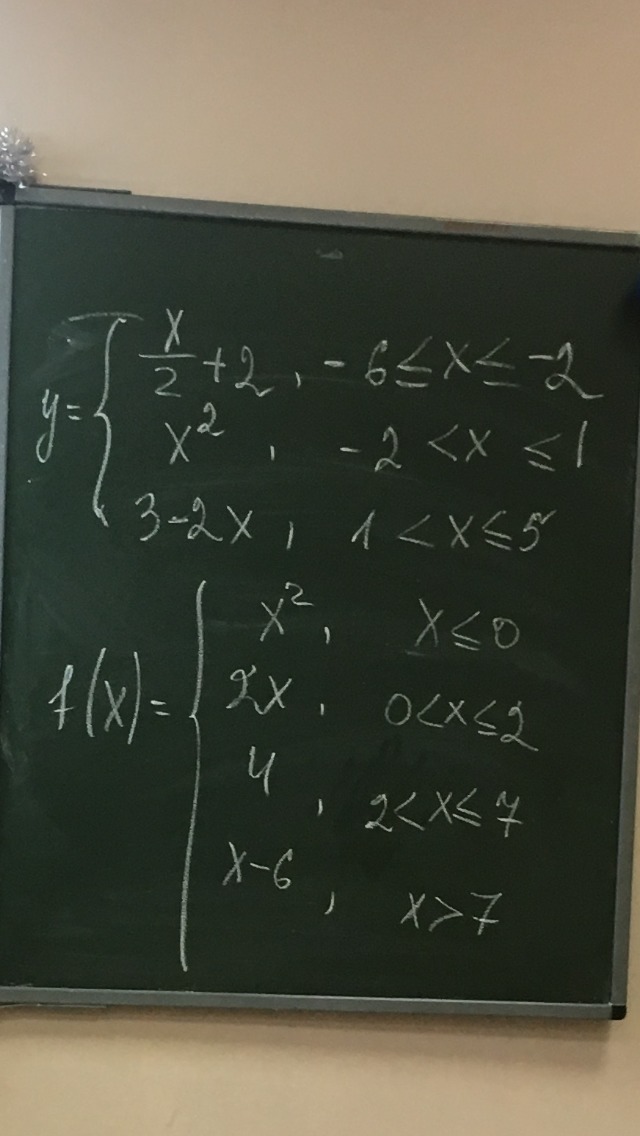 y = { x/2 + 2, -6 ≤ x ≤ -2
x², -2 < x ≤ 1
3-2x, 1 < x ≤ 5
f(x) = { x², x ≤ 0
2x, 0 < x ≤ 2
4, 2 < x ≤ 7
x-6, x > 7